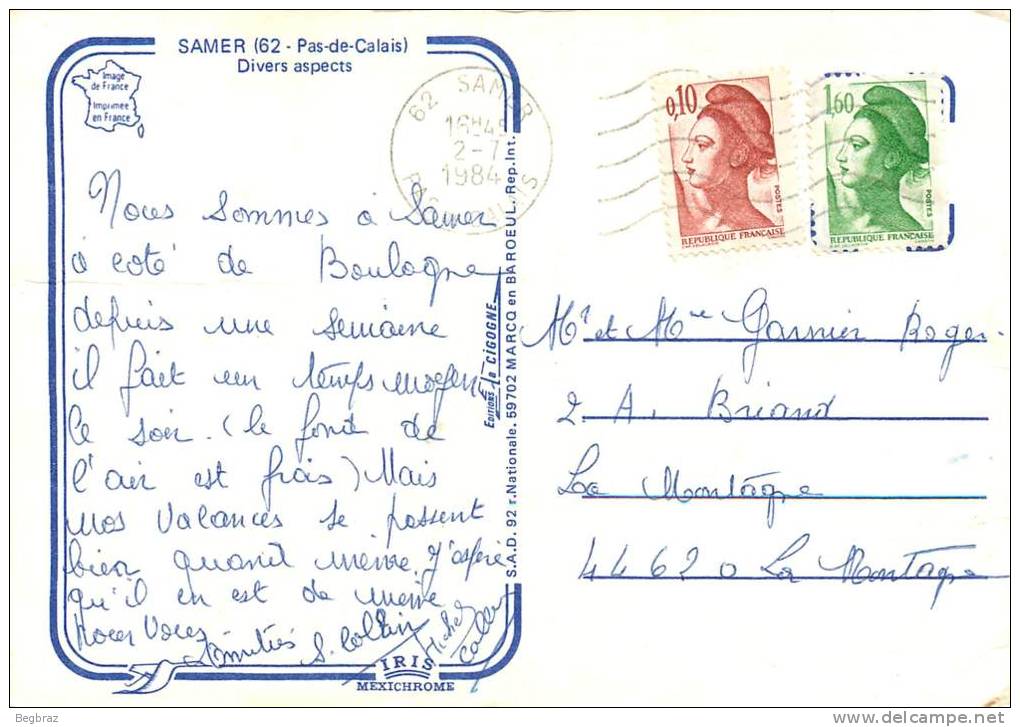 SAMER (62 - Pas-de-Calais)
Divers aspects
Image
de France
Imprimée
en France
62 SAMER
16H45
2-7
1984
PAS CALAIS
0,10
POSTES
REPUBLIQUE FRANÇAISE
1,60
POSTES
REPUBLIQUE FRANÇAISE
Nous sommes à Samer
à coté de Boulogne
depuis une semaine
il fait un temps moyen
le soir. (le fond de
l'air est frais) Mais
nos vacances se passent
bien quand même. J'espère
qu'il en est de même
pour vous
Amitiés S. Collin
Michel
Collin
Editions La CIGOGNE
S.A.D. 92 r. Nationale. 59702 MARCQ en BAROEUL. Rep. Int.
IRIS
MEXICHROME
Mr et Mme Garnier Roger
2 A. Briand
La Montagne
44620 La Montagne
Begbraz
delcampe.net